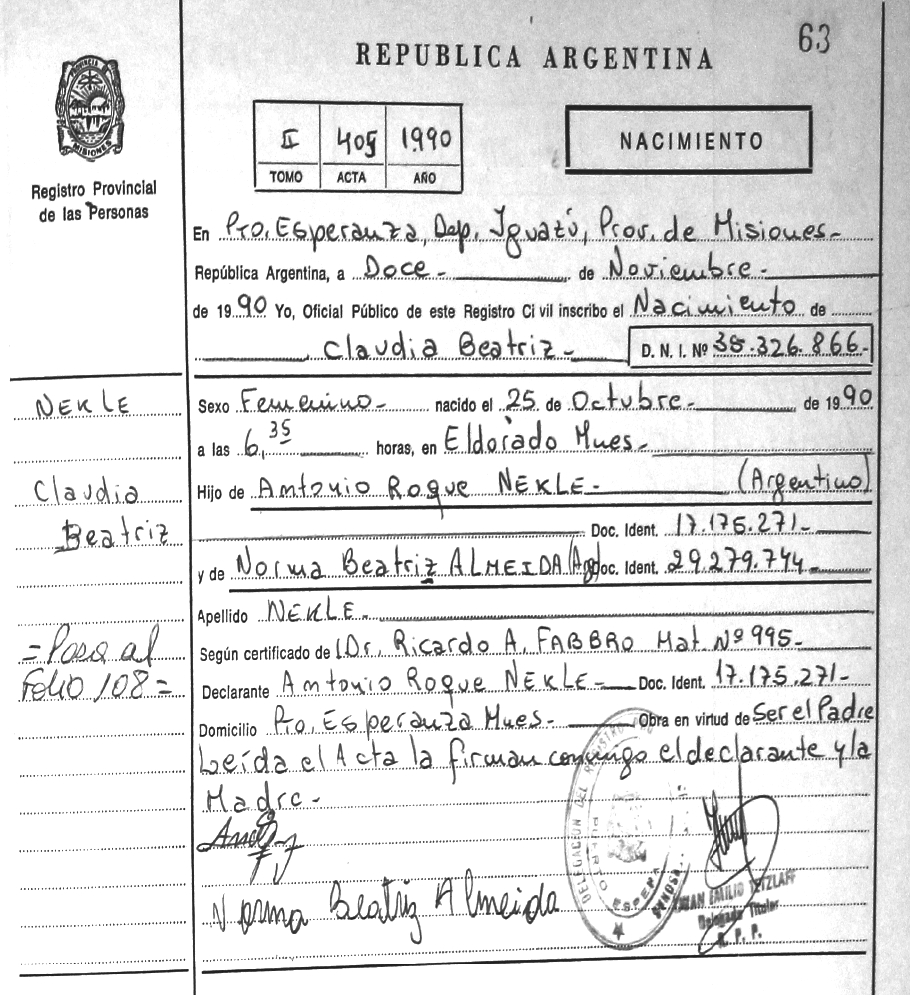 63
REPUBLICA ARGENTINA
PROVINCIA DE
MISIONES
Registro Provincial
de las Personas
II 405 1990
TOMO ACTA AÑO
NACIMIENTO
En Pto. Esperanza, Dep. Iguazú, Prov. de Misiones-
República Argentina, a Doce- de Noviembre-
de 1990 Yo, Oficial Público de este Registro Civil inscribo el Nacimiento de
Claudia Beatriz- D. N. I. Nº 35.326.866-
NEKLE
Claudia
Beatriz
=Pasa al
Folio 108=
Sexo Femenino- nacido el 25 de Octubre- de 1990
a las 6,35 horas, en Eldorado Mnes-
Hijo de Antonio Roque NEKLE- (Argentino)
Doc. Ident. 17.175.271-
y de Norma Beatriz ALMEIDA (Arg) Doc. Ident. 29.279.744-
Apellido NEKLE-
Según certificado de Dr. Ricardo A. FABBRO Mat Nº 995-
Declarante Antonio Roque NEKLE- Doc. Ident. 17.175.271-
Domicilio Pto. Esperanza Mnes- Obra en virtud de Ser el Padre
Leída el Acta la firman conmigo el declarante y la
Madre-
Norma Beatriz Almeida
DELEGACION DEL REGISTRO
PUERTO
ESPERA
JUAN EMILIO TETZLAFF
Delegado Titular
R. P. P.